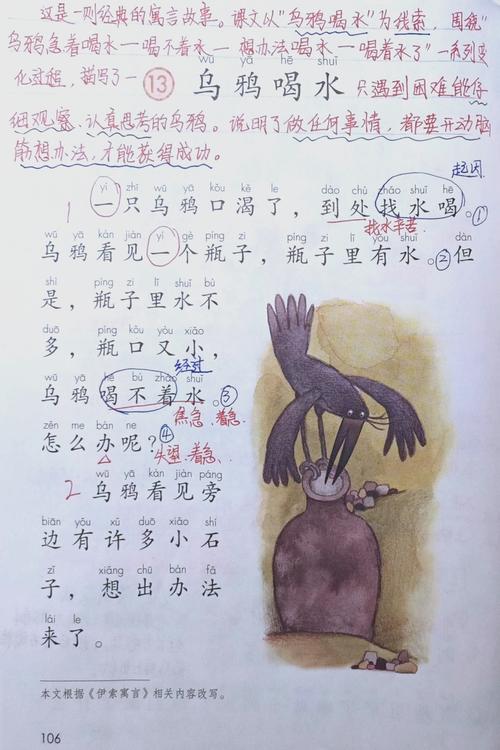 这是一则经典的寓言故事。课文以"乌鸦喝水"为线索，围绕"
乌鸦急着喝水—喝不着水—想办法喝水—喝着水了"一系列变
化过程，描写了一
wū yā hē shuǐ
13 乌鸦喝水
只遇到困难能仔
细观察、认真思考的乌鸦。说明了做任何事情，都要开动脑
筋想办法，才能获得成功。
起因
yì zhī wū yā kǒu kě le dào chù zhǎo shuǐ hē
1 一只乌鸦口渴了，到处找水喝。①
找水辛苦
wū yā kàn jiàn yí gè píng zi píng zi lǐ yǒu shuǐ dàn
乌鸦看见一个瓶子，瓶子里有水。②但
shì píng zi lǐ shuǐ bù
是，瓶子里水不
duō píng kǒu yòu xiǎo
多，瓶口又小，
经过
wū yā hē bù zháo shuǐ
乌鸦喝不着水。③
焦急、着急
zěn me bàn ne
怎么办呢？④
失望、着急
wū yā kàn jiàn páng
2 乌鸦看见旁
biān yǒu xǔ duō xiǎo shí
边有许多小石
zǐ xiǎng chū bàn fǎ
子，想出办法
lái le
来了。
本文根据《伊索寓言》相关内容改写。
106